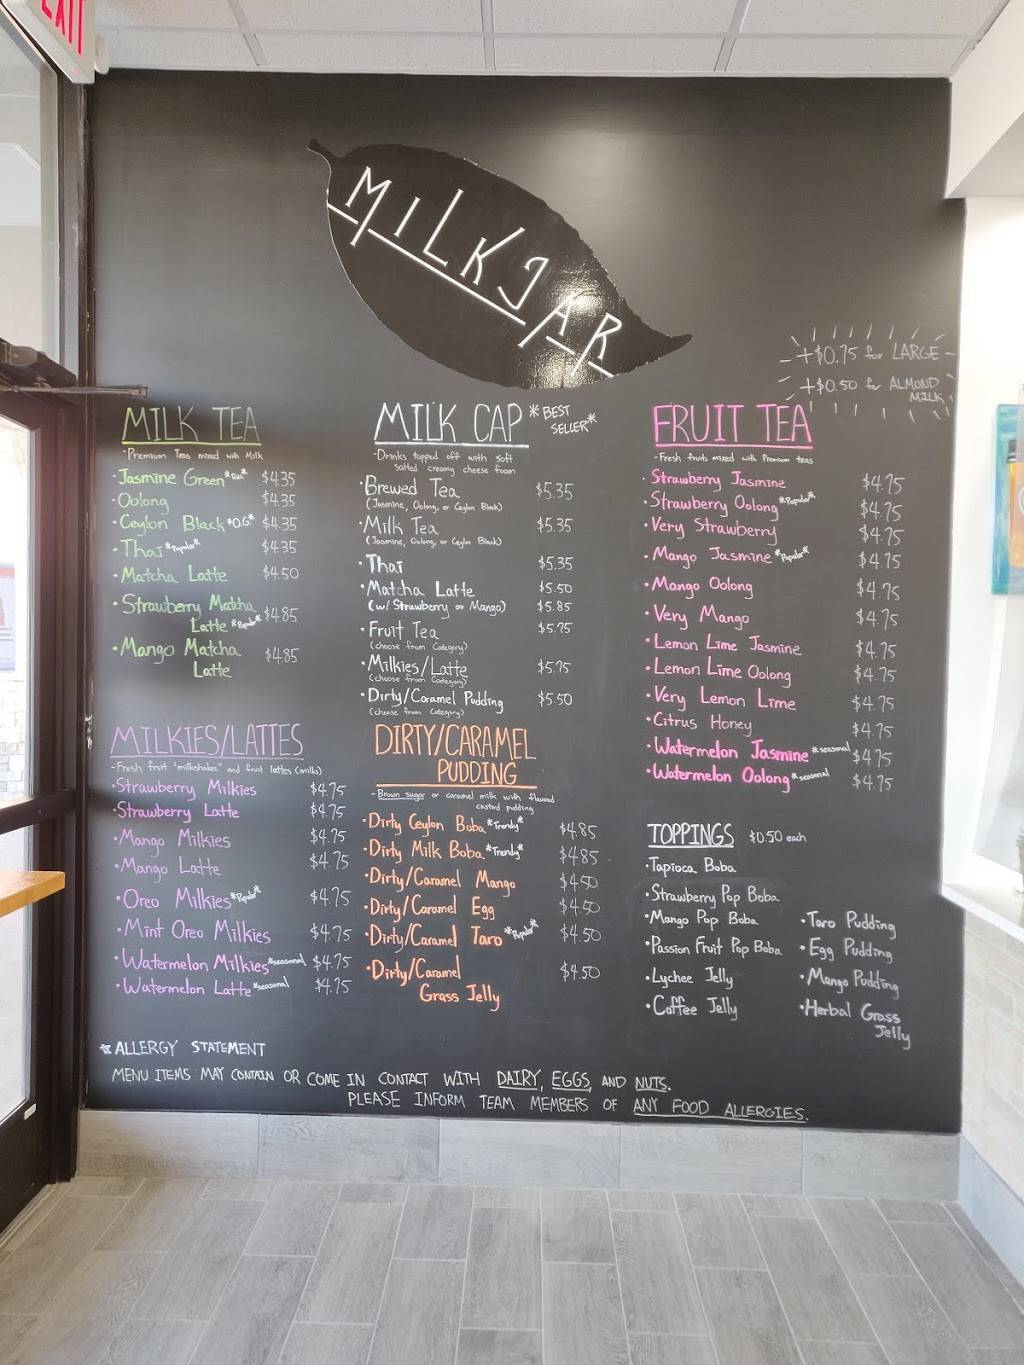 EXIT
MILKJAR
+$0.75 for LARGE
+$0.50 for ALMOND
MILK
MILK TEA
-Premium Teas mixed with Milk
·Jasmine Green $4.35
·Oolong $4.35
·Ceylon Black *O.G* $4.35
·Thai *Popular* $4.35
·Matcha Latte $4.50
·Strawberry Matcha
Latte *Popular* $4.85
·Mango Matcha
Latte $4.85
MILK CAP *BEST
SELLER*
-Drinks topped off with soft
salted creamy cheese foam
·Brewed Tea $5.35
(Jasmine, Oolong, or Ceylon Black)
·Milk Tea $5.35
(Jasmine, Oolong, or Ceylon Black)
·Thai $5.35
·Matcha Latte $5.50
(w/ Strawberry or Mango) $5.85
·Fruit Tea $5.75
(choose from Category)
·Milkies/Latte $5.75
(choose from Category)
·Dirty/Caramel Pudding $5.50
(choose from Category)
FRUIT TEA
-Fresh fruits mixed with Premium teas
·Strawberry Jasmine $4.75
·Strawberry Oolong *Popular* $4.75
·Very Strawberry $4.75
·Mango Jasmine *Popular* $4.75
·Mango Oolong $4.75
·Very Mango $4.75
·Lemon Lime Jasmine $4.75
·Lemon Lime Oolong $4.75
·Very Lemon Lime $4.75
·Citrus Honey $4.75
·Watermelon Jasmine *seasonal $4.75
·Watermelon Oolong *seasonal $4.75
MILKIES/LATTES
-Fresh fruit "milkshakes" and fruit lattes (milks)
·Strawberry Milkies $4.75
·Strawberry Latte $4.75
·Mango Milkies $4.75
·Mango Latte $4.75
·Oreo Milkies *Popular* $4.75
·Mint Oreo Milkies $4.75
·Watermelon Milkies *seasonal $4.75
·Watermelon Latte *seasonal $4.75
DIRTY/CARAMEL
PUDDING
-Brown sugar or caramel milk with flavored
custard pudding
·Dirty Ceylon Boba *Trendy* $4.85
·Dirty Milk Boba *Trendy* $4.85
·Dirty/Caramel Mango $4.50
·Dirty/Caramel Egg $4.50
·Dirty/Caramel Taro *Popular* $4.50
·Dirty/Caramel $4.50
Grass Jelly
TOPPINGS $0.50 each
·Tapioca Boba
·Strawberry Pop Boba
·Mango Pop Boba
·Passion Fruit Pop Boba
·Lychee Jelly
·Coffee Jelly
·Taro Pudding
·Egg Pudding
·Mango Pudding
·Herbal Grass
Jelly
*ALLERGY STATEMENT
MENU ITEMS MAY CONTAIN OR COME IN CONTACT WITH DAIRY, EGGS, AND NUTS.
PLEASE INFORM TEAM MEMBERS OF ANY FOOD ALLERGIES.